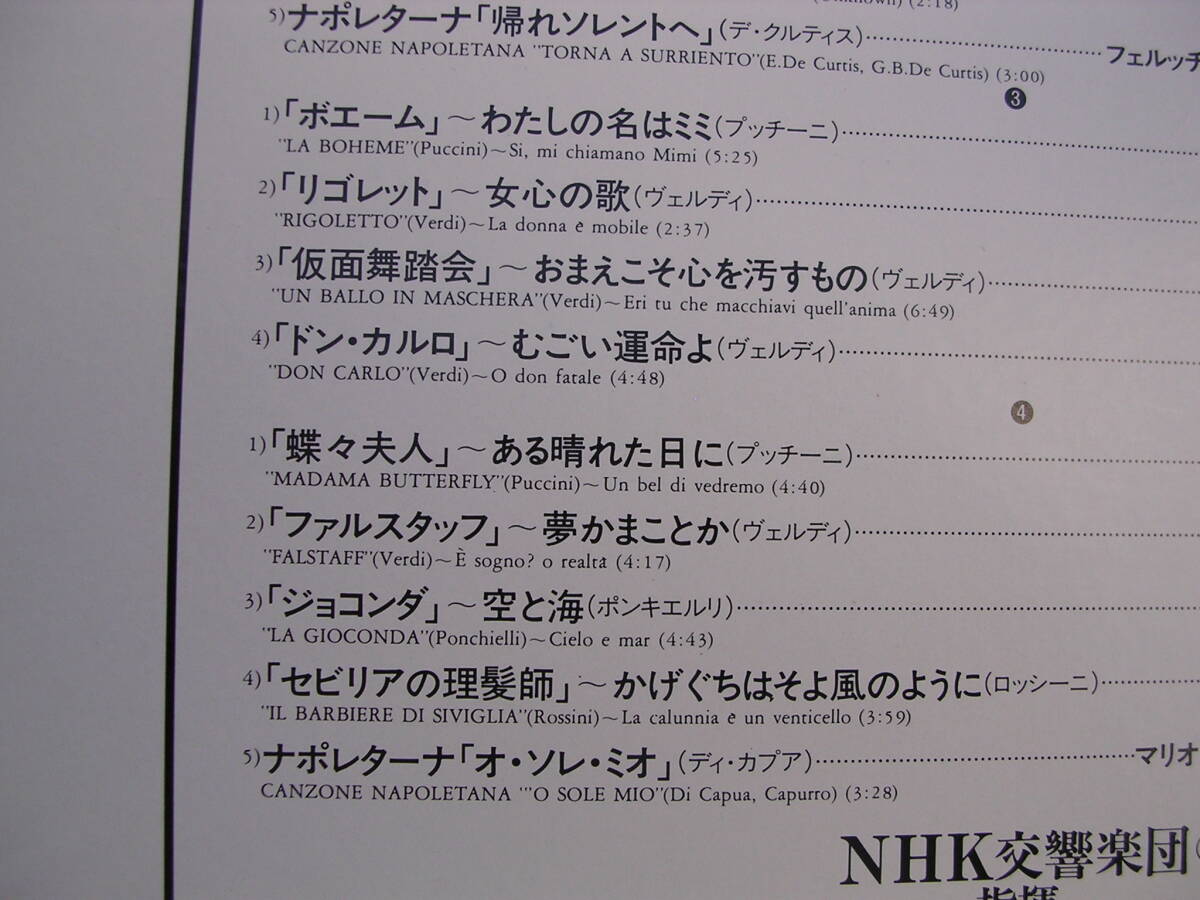 (Unknown) (2:18)
5)ナポレターナ「帰れソレントへ」(デ・クルティス)……………………フェルッチ
CANZONE NAPOLETANA "TORNA A SURRIENTO"(E.De Curtis, G.B.De Curtis) (3:00)
❸
1)「ボエーム」～わたしの名はミミ(プッチーニ)……………………
"LA BOHEME"(Puccini)～Si, mi chiamano Mimi (5:25)
2)「リゴレット」～女心の歌(ヴェルディ)……………………
"RIGOLETTO"(Verdi)～La donna e mobile (2:37)
3)「仮面舞踏会」～おまえこそ心を汚すもの(ヴェルディ)……………………
"UN BALLO IN MASCHERA"(Verdi)～Eri tu che macchiavi quell'anima (6:49)
4)「ドン・カルロ」～むごい運命よ(ヴェルディ)……………………
"DON CARLO"(Verdi)～O don fatale (4:48)
❹
1)「蝶々夫人」～ある晴れた日に(プッチーニ)……………………
"MADAMA BUTTERFLY"(Puccini)～Un bel di vedremo (4:40)
2)「ファルスタッフ」～夢かまことか(ヴェルディ)……………………
"FALSTAFF"(Verdi)～È sogno? o realtà (4:17)
3)「ジョコンダ」～空と海(ポンキエルリ)……………………
"LA GIOCONDA"(Ponchielli)～Cielo e mar (4:43)
4)「セビリアの理髪師」～かげぐちはそよ風のように(ロッシーニ)……………………
"IL BARBIERE DI SIVIGLIA"(Rossini)～La calunnia è un venticello (3:59)
5)ナポレターナ「オ・ソレ・ミオ」(ディ・カプア)……………………マリオ
CANZONE NAPOLETANA "'O SOLE MIO"(Di Capua, Capurro) (3:28)
NHK交響楽団
指揮